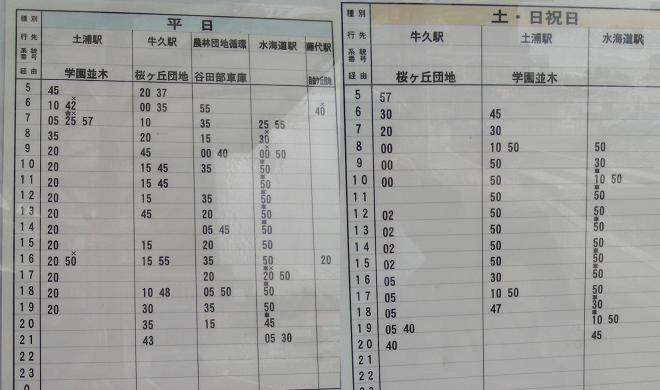 種別 平日
行先 土浦駅 牛久駅 農林団地循環 水海道駅 藤代駅
系統番号
経由 学園並木 桜ヶ丘団地 谷田部車庫 自由ケ丘団地
5 45 20 37
6 10 42 00 35 55 40
7 05 25 57 10 35 25 55
8 35 20 15 30
9 20 45 00 40 00 50
10 20 15 45 35 50
11 20 15 45 50
12 20 15 35 50
13 20 45 20 50
14 20 05 45 50
15 20 15 20 50
16 20 50 15 55 35 50 20
17 20 20 20 50
18 20 10 48 05 50 50
19 20 30 35 50
20 35 15 45
21 43 05 30
22
23
種別 土・日祝日
行先 牛久駅 土浦駅 水海道駅
系統番号
経由 桜ヶ丘団地 学園並木
5 57
6 30 45
7 20 30
8 00 10 50 50
9 00 50 30
10 00 50 10 50
11 50 50
12 02 50 50
13 02 50 50
14 02 50 50
15 02 50 50
16 05 30 50
17 05 10 50 50
18 05 47 30
19 05 40 10 50
20 40 45
21
22